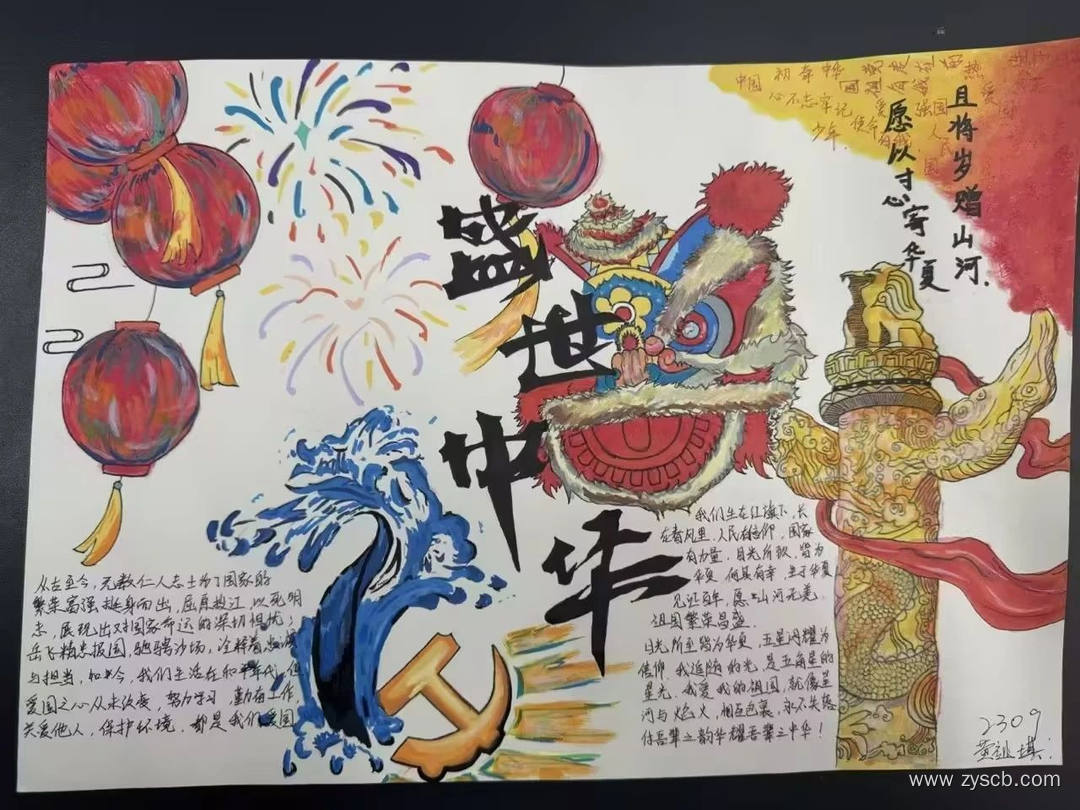 盛世中华
且将岁赠山河.
愿以寸心寄华夏
从古至今,无数仁人志士为了国家的
繁荣富强挺身而出,屈原投江,以死明
志,展现出对国家命运的深切担忧;
岳飞精忠报国,驰骋沙场,诠释着
与担当,如今,我们生活在和平年代,但
爱国之心从未改变,努力学习,勤奋工作,
关爱他人,保护环境,都是我们爱国
我们生在红旗下,长
在春风里,人民有信仰,国家
有力量,目光所致,皆为
华夏
见证百年,愿山河无恙,
祖国繁荣昌盛.
目光所至皆为华夏,五星闪耀为
信仰,我追随的光,是五角星的
星光,我爱我的祖国,就像星
河与焰火,相互包裹,永不失落
付吾辈之韵华耀吾辈之中华!
2309
www.zyscb.com